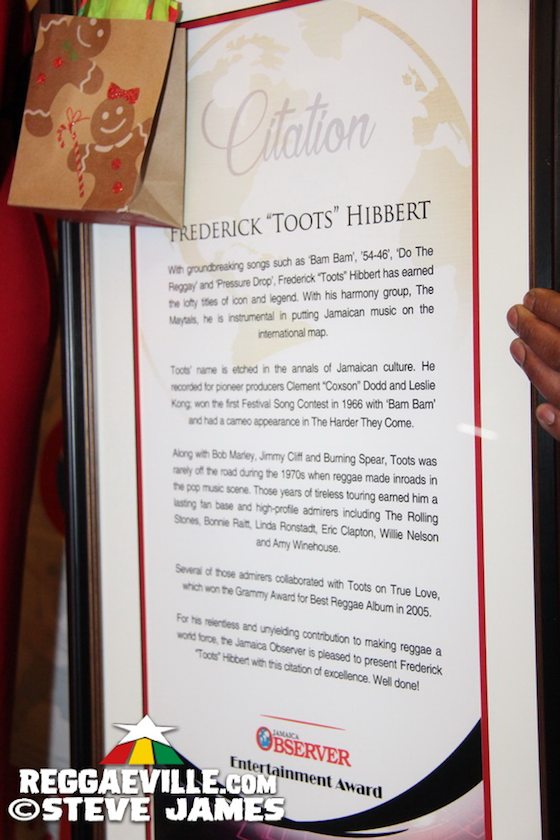 Citation
FREDERICK "TOOTS" HIBBERT
With groundbreaking songs such as 'Bam Bam', '54-46', 'Do The
Reggay' and 'Pressure Drop', Frederick "Toots" Hibbert has earned
the lofty titles of icon and legend. With his harmony group, The
Maytals, he is instrumental in putting Jamaican music on the
international map.
Toots' name is etched in the annals of Jamaican culture. He
recorded for pioneer producers Clement "Coxson" Dodd and Leslie
Kong; won the first Festival Song Contest in 1966 with 'Bam Bam'
and had a cameo appearance in The Harder They Come.
Along with Bob Marley, Jimmy Cliff and Burning Spear, Toots was
rarely off the road during the 1970s when reggae made inroads in
the pop music scene. Those years of tireless touring earned him a
lasting fan base and high-profile admirers including The Rolling
Stones, Bonnie Raitt, Linda Ronstadt, Eric Clapton, Willie Nelson
and Amy Winehouse.
Several of those admirers collaborated with Toots on True Love,
which won the Grammy Award for Best Reggae Album in 2005.
For his relentless and unyielding contribution to making reggae a
world force, the Jamaica Observer is pleased to present Frederick
"Toots" Hibbert with this citation of excellence. Well done!
JAMAICA
OBSERVER
Entertainment Award
REGGAEVILLE.COM
©STEVE JAMES